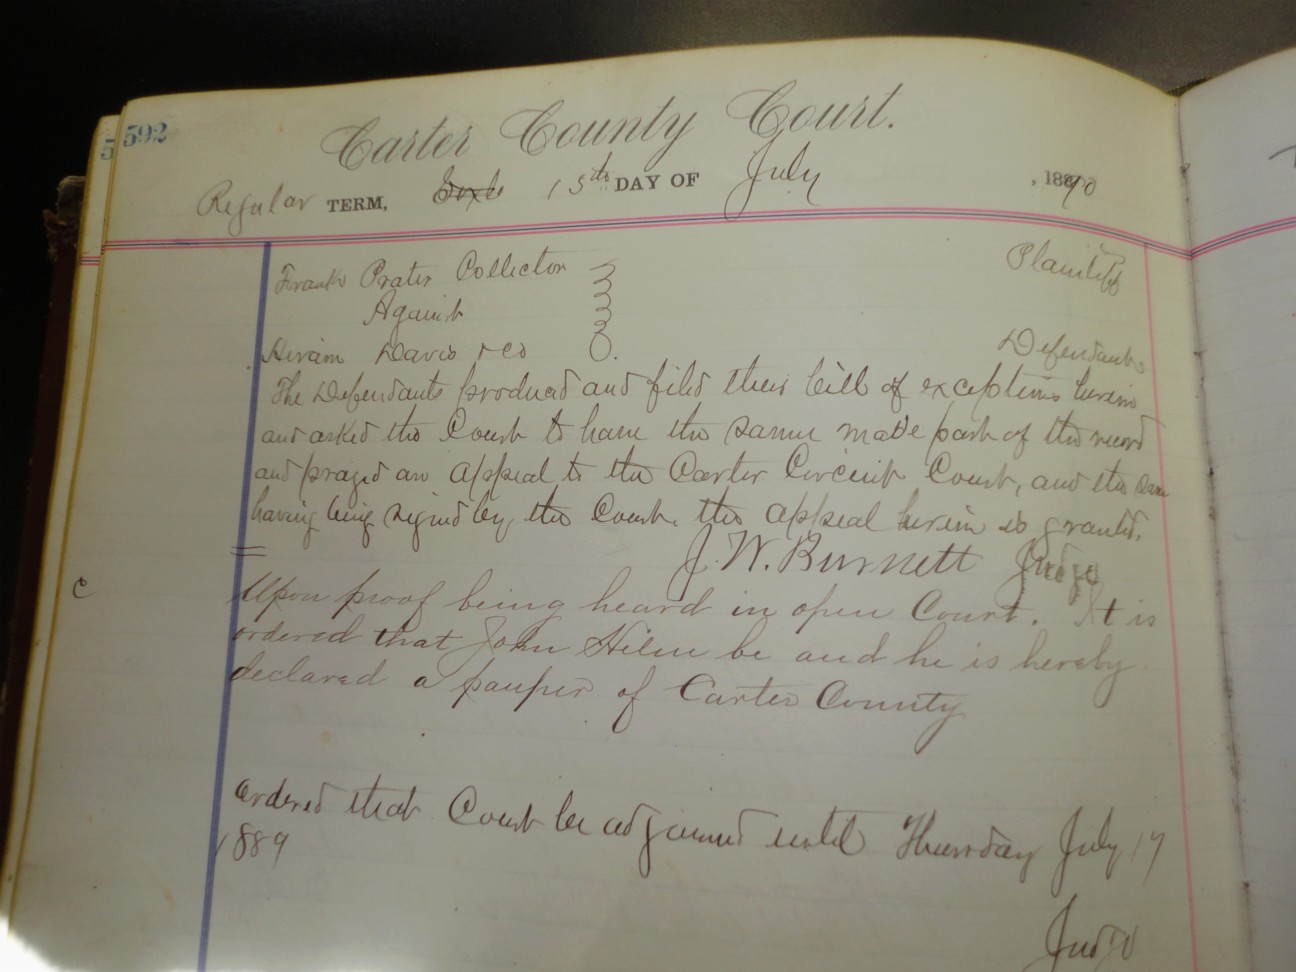 592
5
Carter County Court.
Regular TERM, 15th DAY OF July, 1890
Frank Prater Collector Plaintiff
Against
Hiram Davis & Co Defendants
The Defendants produced and filed their bill of exceptions herein
and asked the Court to have the same made part of the record
and prayed an appeal to the Carter Circuit Court, and the same
having being signed by the Court. the appeal herein is granted.
J. W. Burnett Judge
C
Upon proof being heard in open Court. It is
ordered that John be and he is hereby
declared a pauper of Carter County
Ordered that Court be adjourned until Thursday July 17
1889
Judge